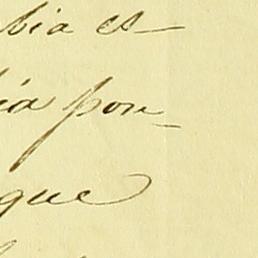 bia es-
ia pon-
que